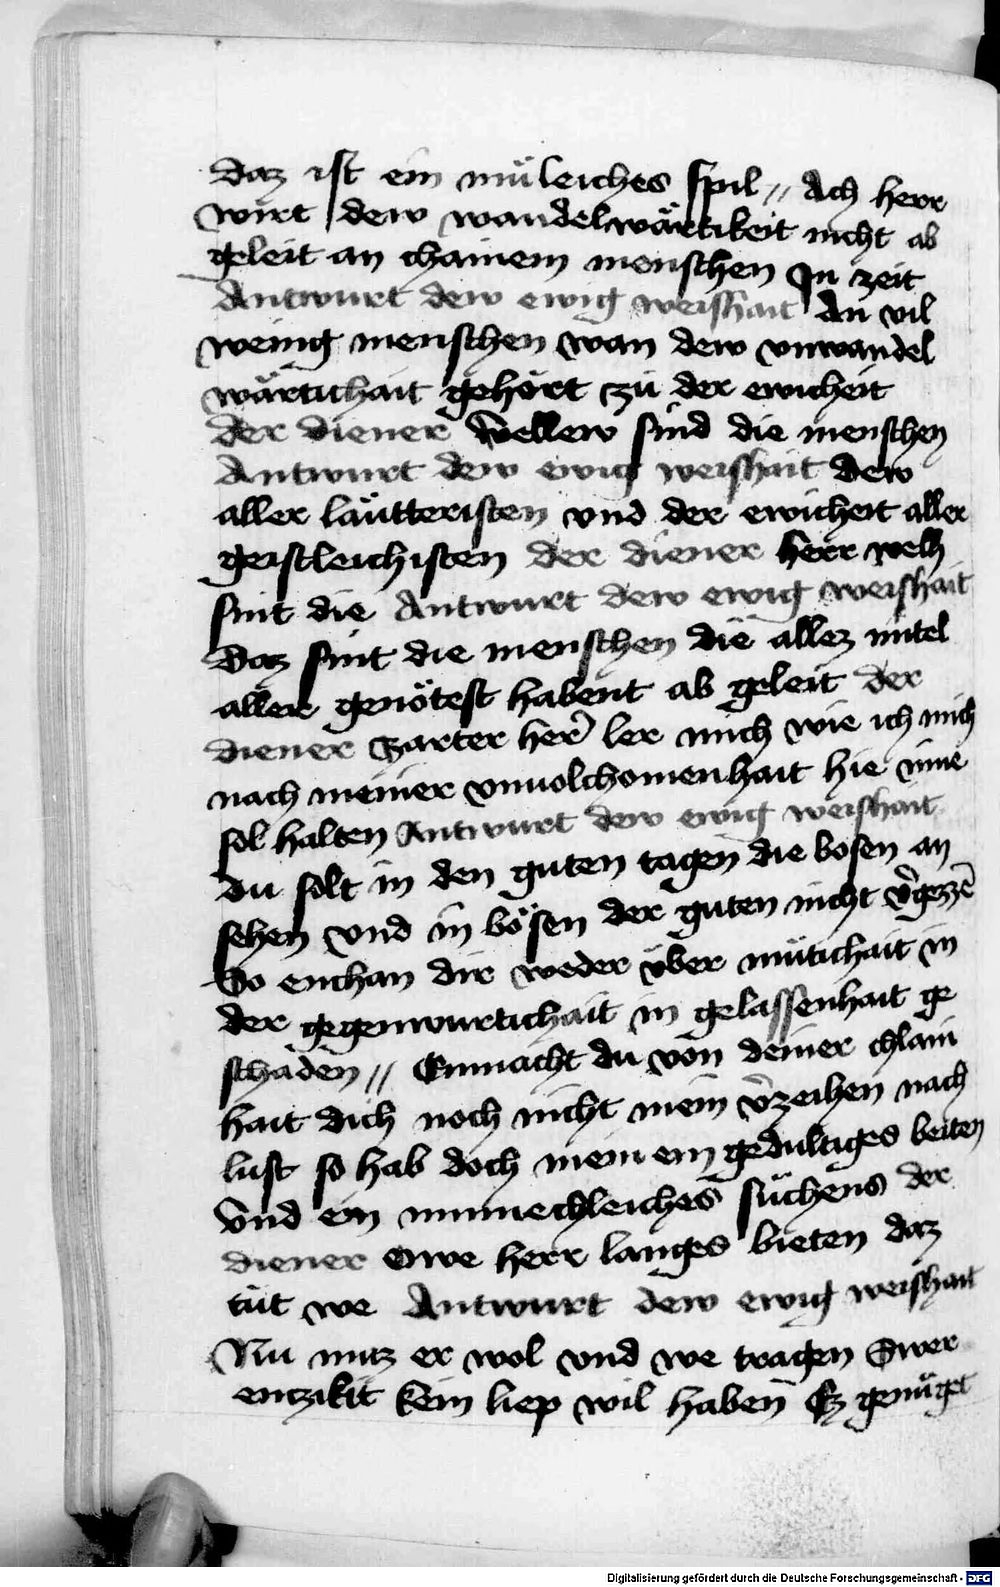 daz ist ein müleiches spil // Ach herr
wirt dew wandelwärtikeit nicht ab
geleit an chainem menschen Jn zeit
Antwurt dew ewig weishait An vil
wenig menschen wan dew vnwandel
wärtichait gehört zü der ewicheit
der diener Wellew sind die menschen
Antwurt dew ewig weishait dew
aller läutteristen vnd der ewicheit aller
geistleichisten der diener herr welh
sint die Antwurt dew ewig weishait
Daz sint die menschen die allez mitel
aller genötest habent ab geleit der
diener Zarter her̄ ler mich wie ich mich
nach meiner vnuolchomenhait hie inne
sol halten Antwurt dew ewig weishait
du solt in den guten tagen die bosen an
sehen vnd in bösen der guten nicht v̄gezzē
So enchan dir weder über mütichait in
der gegenwurtichait in gelassenhait ge
schaden // Enmacht du von deiner chlain
hait dich noch nicht mein v̄zeihen nach
lust so hab doch mein ein gedultiges beiten
Vnd ein minnechleiches süchens der
diener Owe herr langes bieten daz
tüt we Antwurt dew ewig weishait
Nu mūz er wol vnd we tragen Swer
enzikit kein liep wil haben Ez genüget
Digitalisierung gefördert durch die Deutsche Forschungsgemeinschaft - DFG